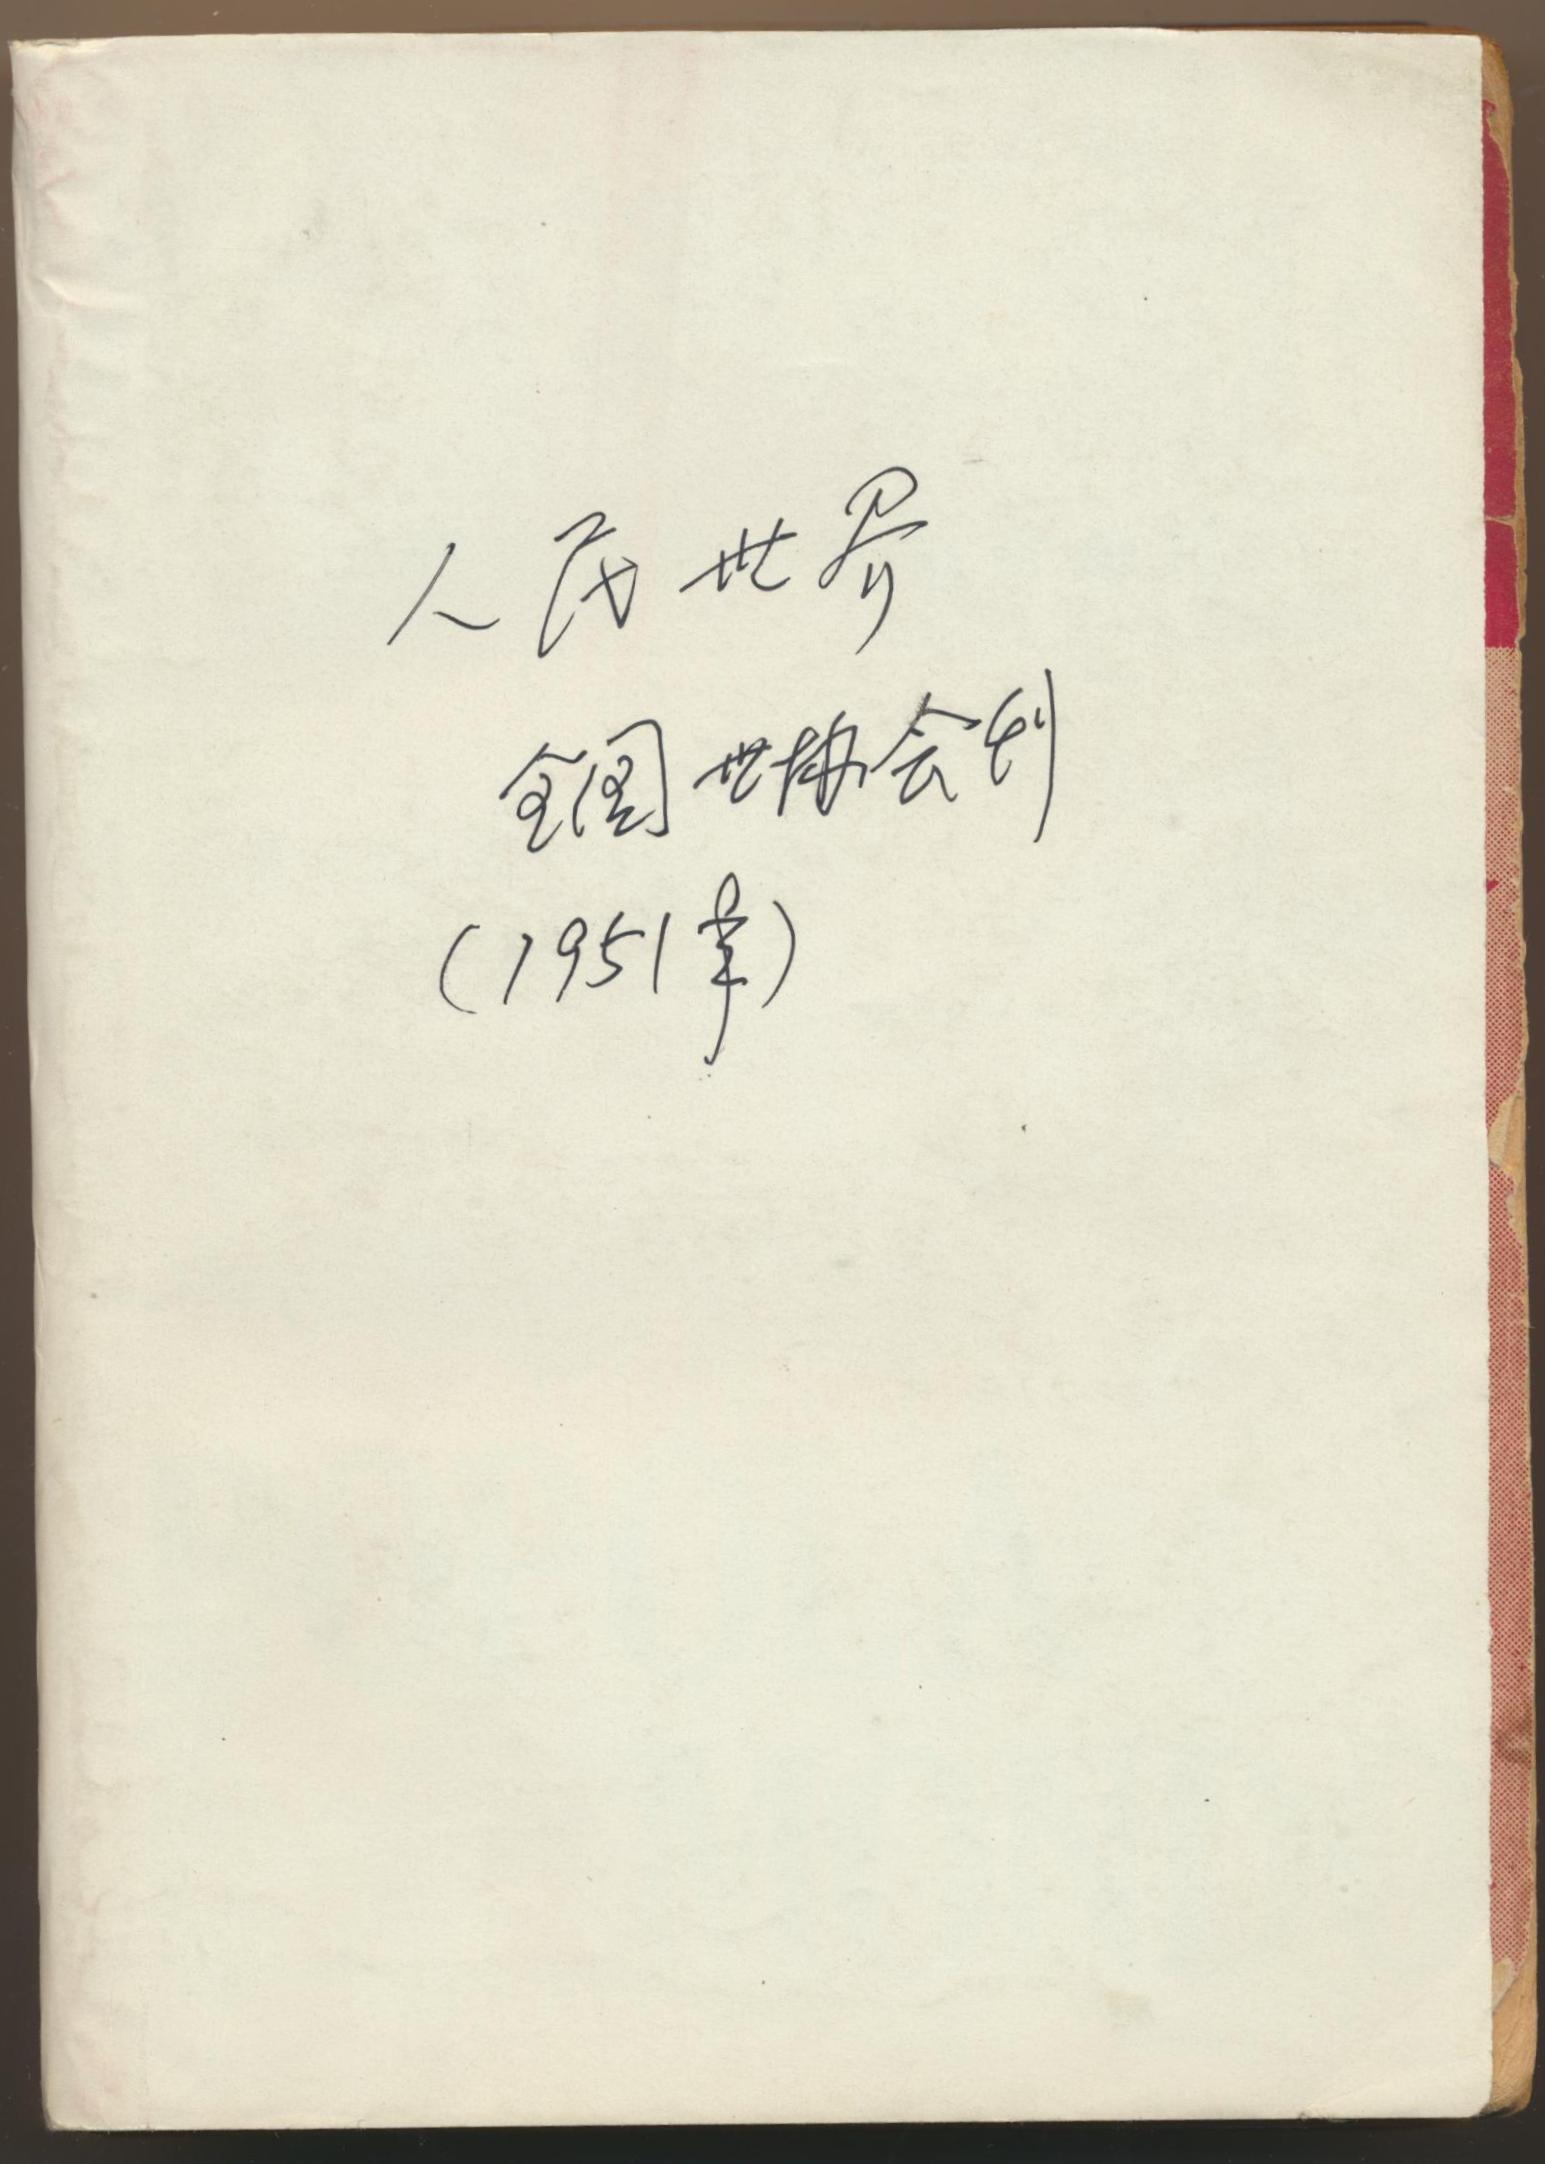 人民世界
全国世协会刊
(1951年)